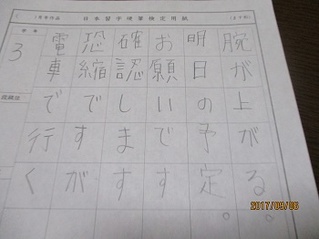 日本習字硬筆検定用紙
3
腕が上がる。
明日の予定
お願いです
確認します
恐縮ですが
電車で行く
2017/09/06